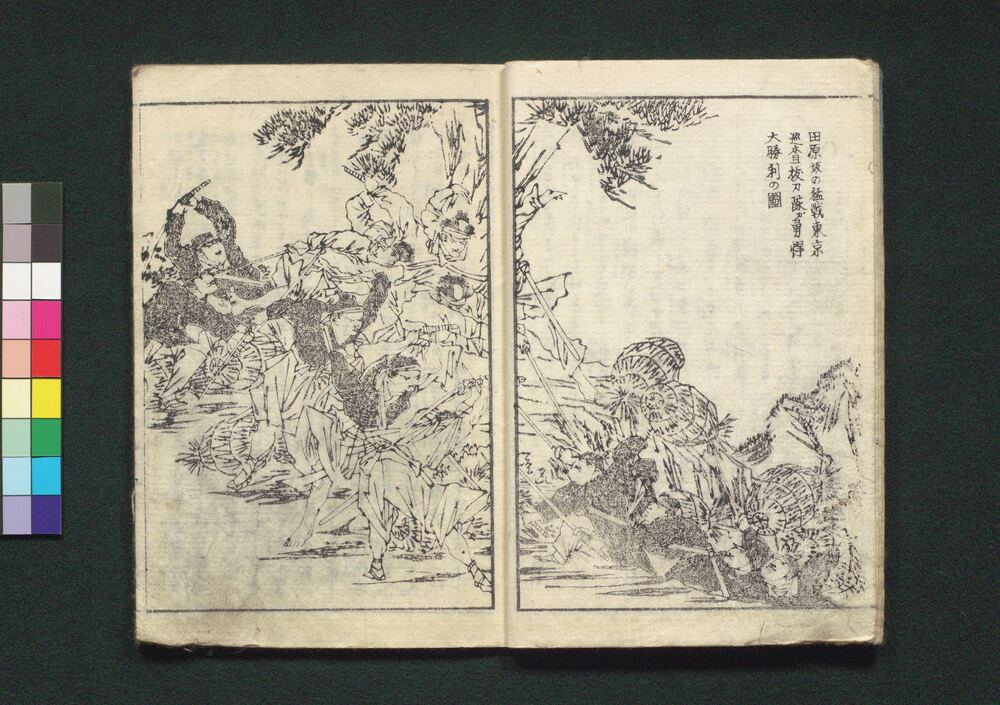 田原坂の猛戦東京
巡査抜刀隊が勇悍
大勝利の圖